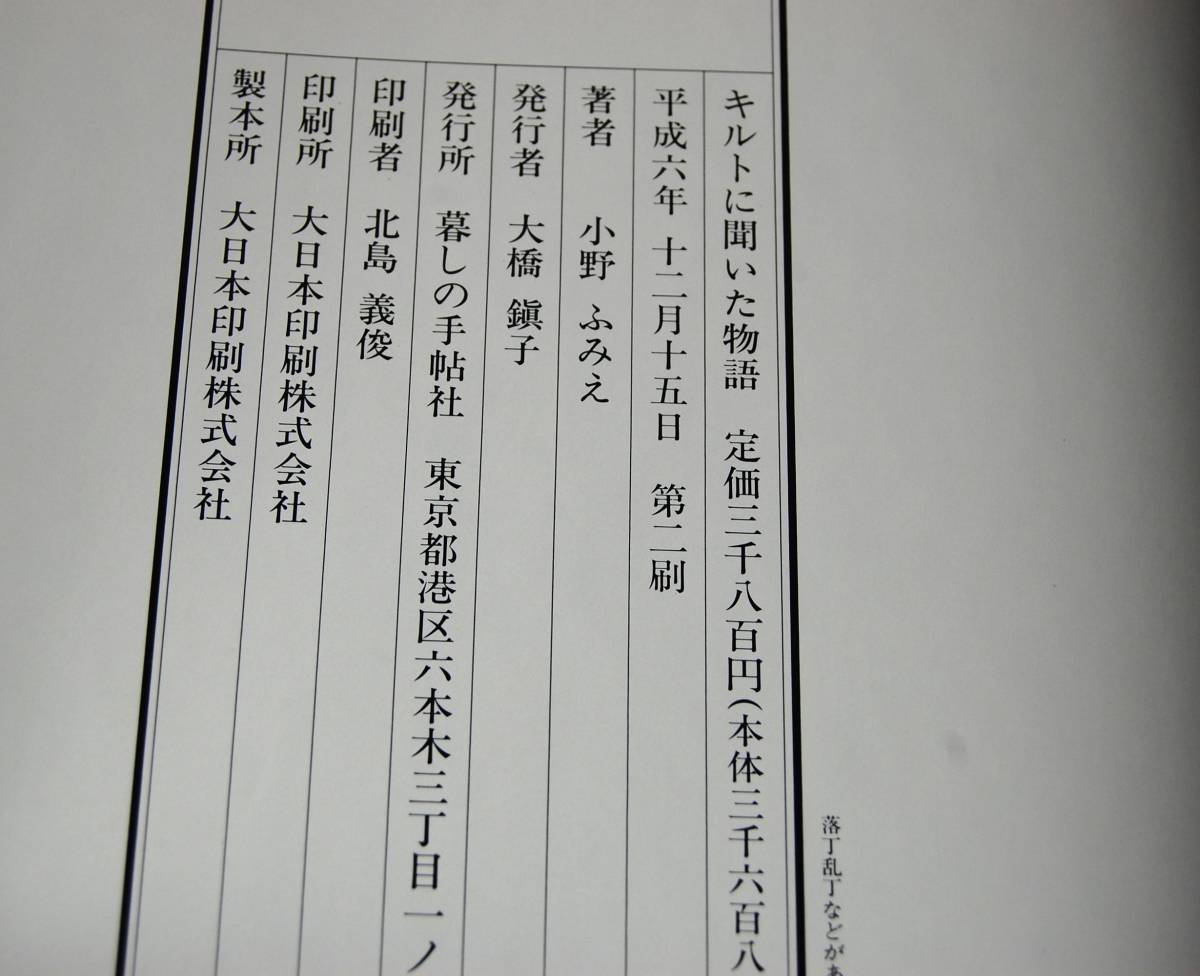 落丁乱丁などがあ
キルトに聞いた物語 定価三千八百円(本体三千六百八
平成六年 十二月十五日 第二刷
著者 小野 ふみえ
発行者 大橋 鎭子
発行所 暮しの手帖社 東京都港区六本木三丁目一ノ
印刷者 北島 義俊
印刷所 大日本印刷株式会社
製本所 大日本印刷株式会社